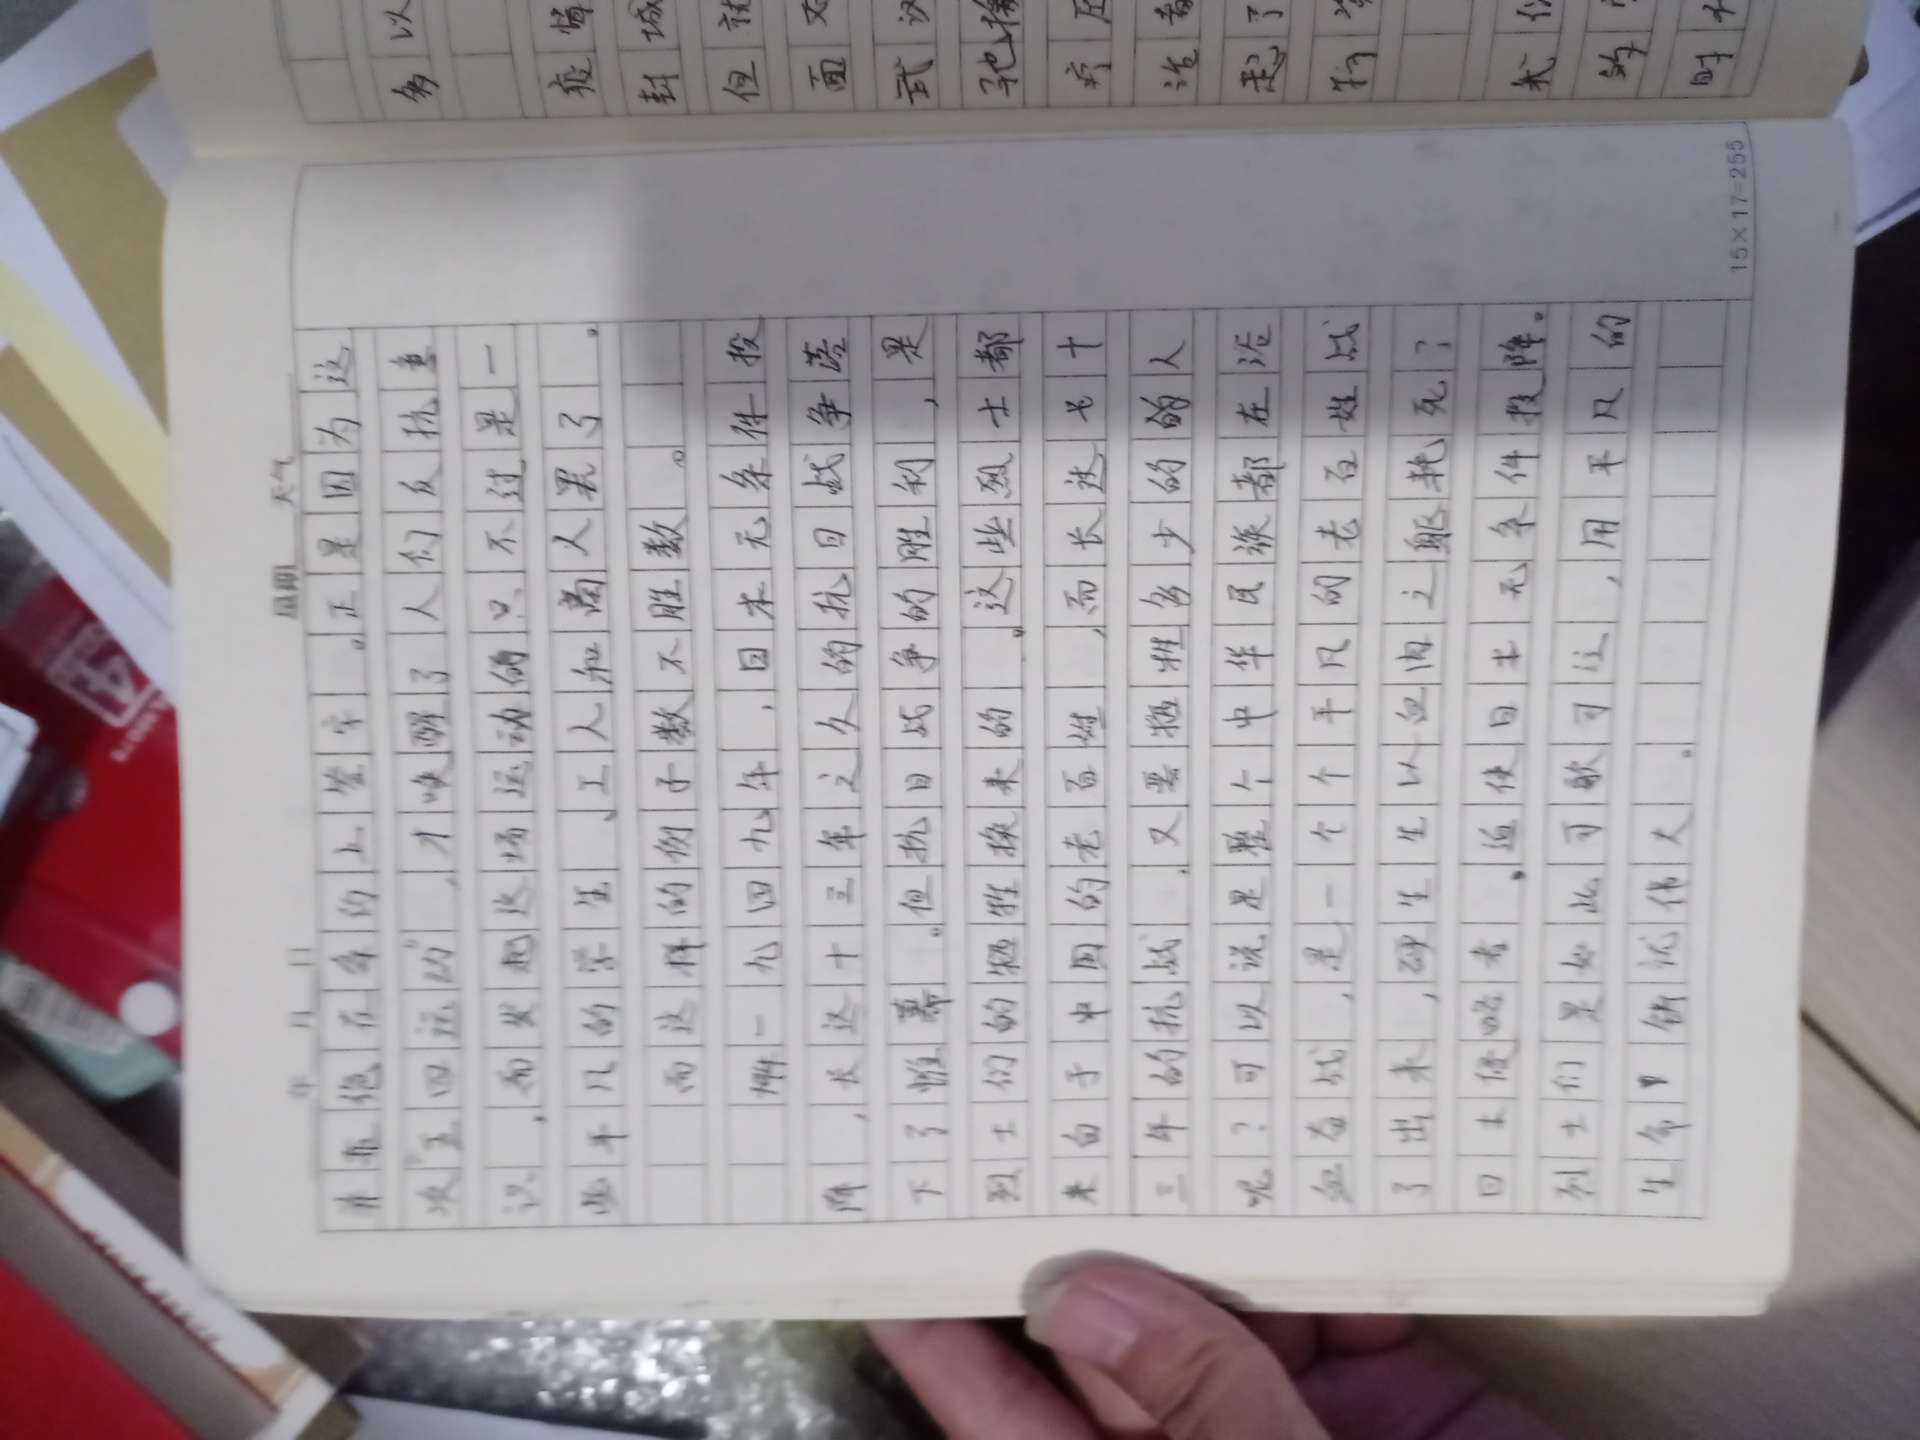 年 月 日 星期 天气
并拒绝在条约上签字。正是因为这
次"五四运动",才唤醒了人们反抗意
识,而发起这场运动的只不过是一
些平凡的学生、工人和商人罢了。
而这样的例子数不胜数。
一九四九年,日本无条件投
降,长达十三年之久的抗日战争落
下了帷幕。但抗日战争的胜利,是
烈士们的牺牲换来的。这些烈士都
来自于中国的老百姓,而长达七十
三年的抗战,又要牺牲多少的的人
呢?可以说是整个中华民族都在浴
血奋战,是一个个平凡的老百姓站
了出来,硬生生以血肉之躯耗死?
日本侵略者,迫使日本无条件投降。
烈士们是如此可歌可泣,用平凡的
生命铸就伟大。
15×17=255
多以
封城
但就
面对
武汉
疗
活着
起了
我们
的